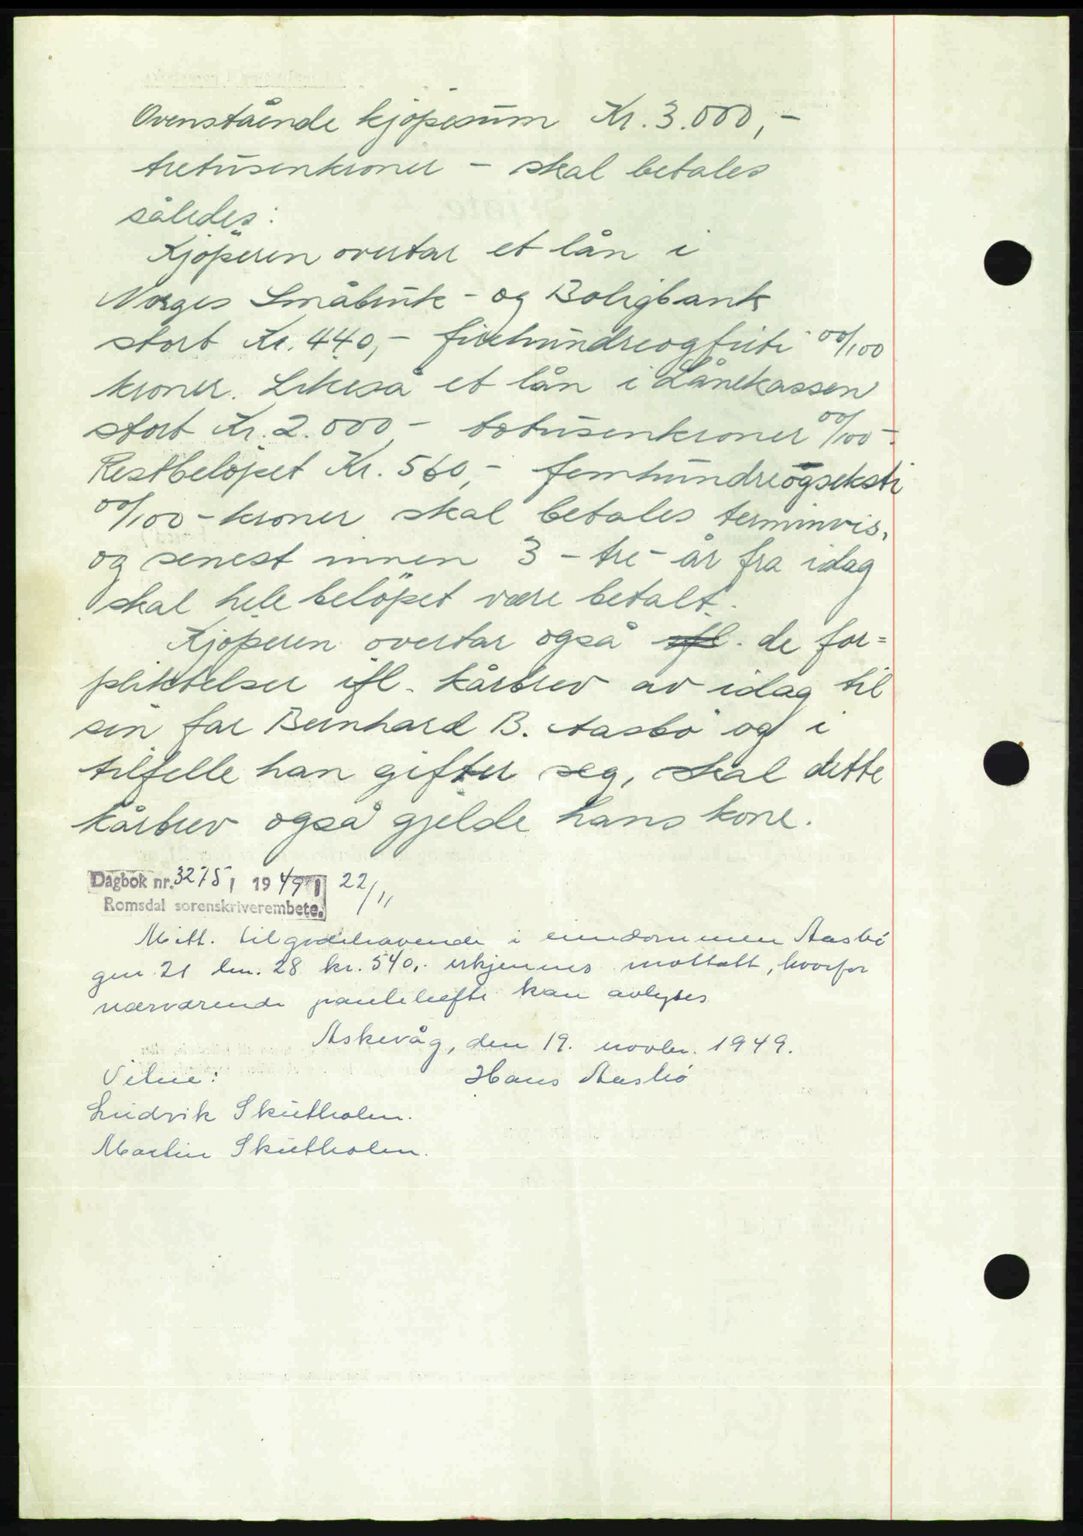 Ovenstående kjöpesum Kr. 3.000,-
tretusenkroner - skal betales
således:
Kjöperen overtar et lån i
Norges Småbruk- og Boligbank
stort Kr. 440,- firehundreogfirti 00/100
kroner. Likeså et lån i Lånekassen
stort Kr. 2.000,- totusenkroner 00/100-.
Restbelöpet Kr. 560,- femhundreogseksti
00/100-kroner skal betales terminvis,
og senest innen 3 - tre - år fra idag
skal hele belöpet være betalt.
Kjöperen overtar også ifl. de for=
pliktelser ifl. kårbrev av idag til
sin far Bernhard B. Aasbö og i
tilfelle han gifter seg, skal dette
kårbrev også gjelde hans kone.
Dagbok nr. 3275, 1949 22/11
Romsdal sorenskriverembete.
Mitt tilgodehavende i eiendommen Aasbö
gnr. 21 bnr. 28 kr. 540,- erkjennes mottatt, hvorfor
nærværende pantehefte kan avlyses
Askevåg, den 19. novbr. 1949.
Vitne: Hans Aasbö
Ludvik Skutholm.
Martin Skutholm.